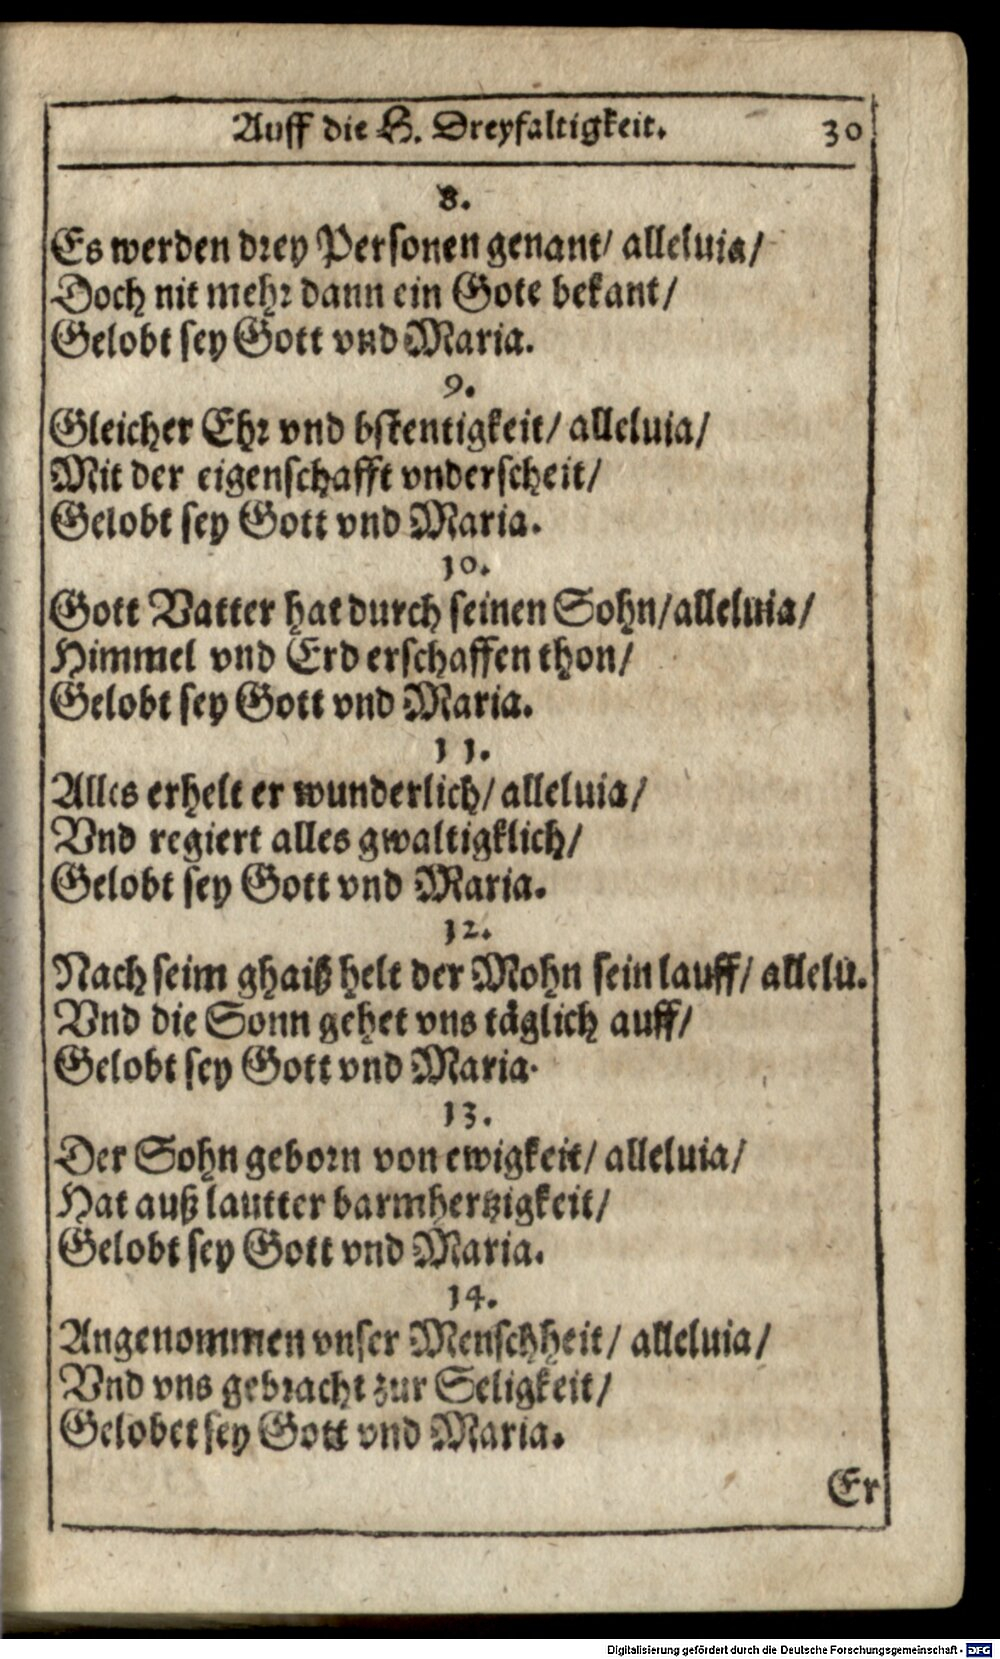 Auff die H. Dreyfaltigkeit. 30
8.
Es werden drey Personen genant/ alleluia/
Doch nit mehr dann ein Gott bekant/
Gelobt sey Gott vnd Maria.
9.
Gleicher Ehr vnd bstentigkeit/ alleluia/
Mit der eigenschafft vnderscheit/
Gelobt sey Gott vnd Maria.
10.
Gott Vatter hat durch seinen Sohn/alleluia/
Himmel vnd Erd erschaffen thon/
Gelobt sey Gott vnd Maria.
11.
Alles erhelt er wunderlich/ alleluia/
Vnd regiert alles gwaltigklich/
Gelobt sey Gott vnd Maria.
12.
Nach seim ghaiß helt der Mohn sein lauff/ allelu.
Vnd die Sonn gehet vns täglich auff/
Gelobt sey Gott vnd Maria.
13.
Der Sohn geborn von ewigkeit/ alleluia/
Hat auß lautter barmhertzigkeit/
Gelobt sey Gott vnd Maria.
14.
Angenommen vnser Menschheit/ alleluia/
Vnd vns gebracht zur Seligkeit/
Gelobet sey Gott vnd Maria.
Er
Digitalisierung gefördert durch die Deutsche Forschungsgemeinschaft - DFG